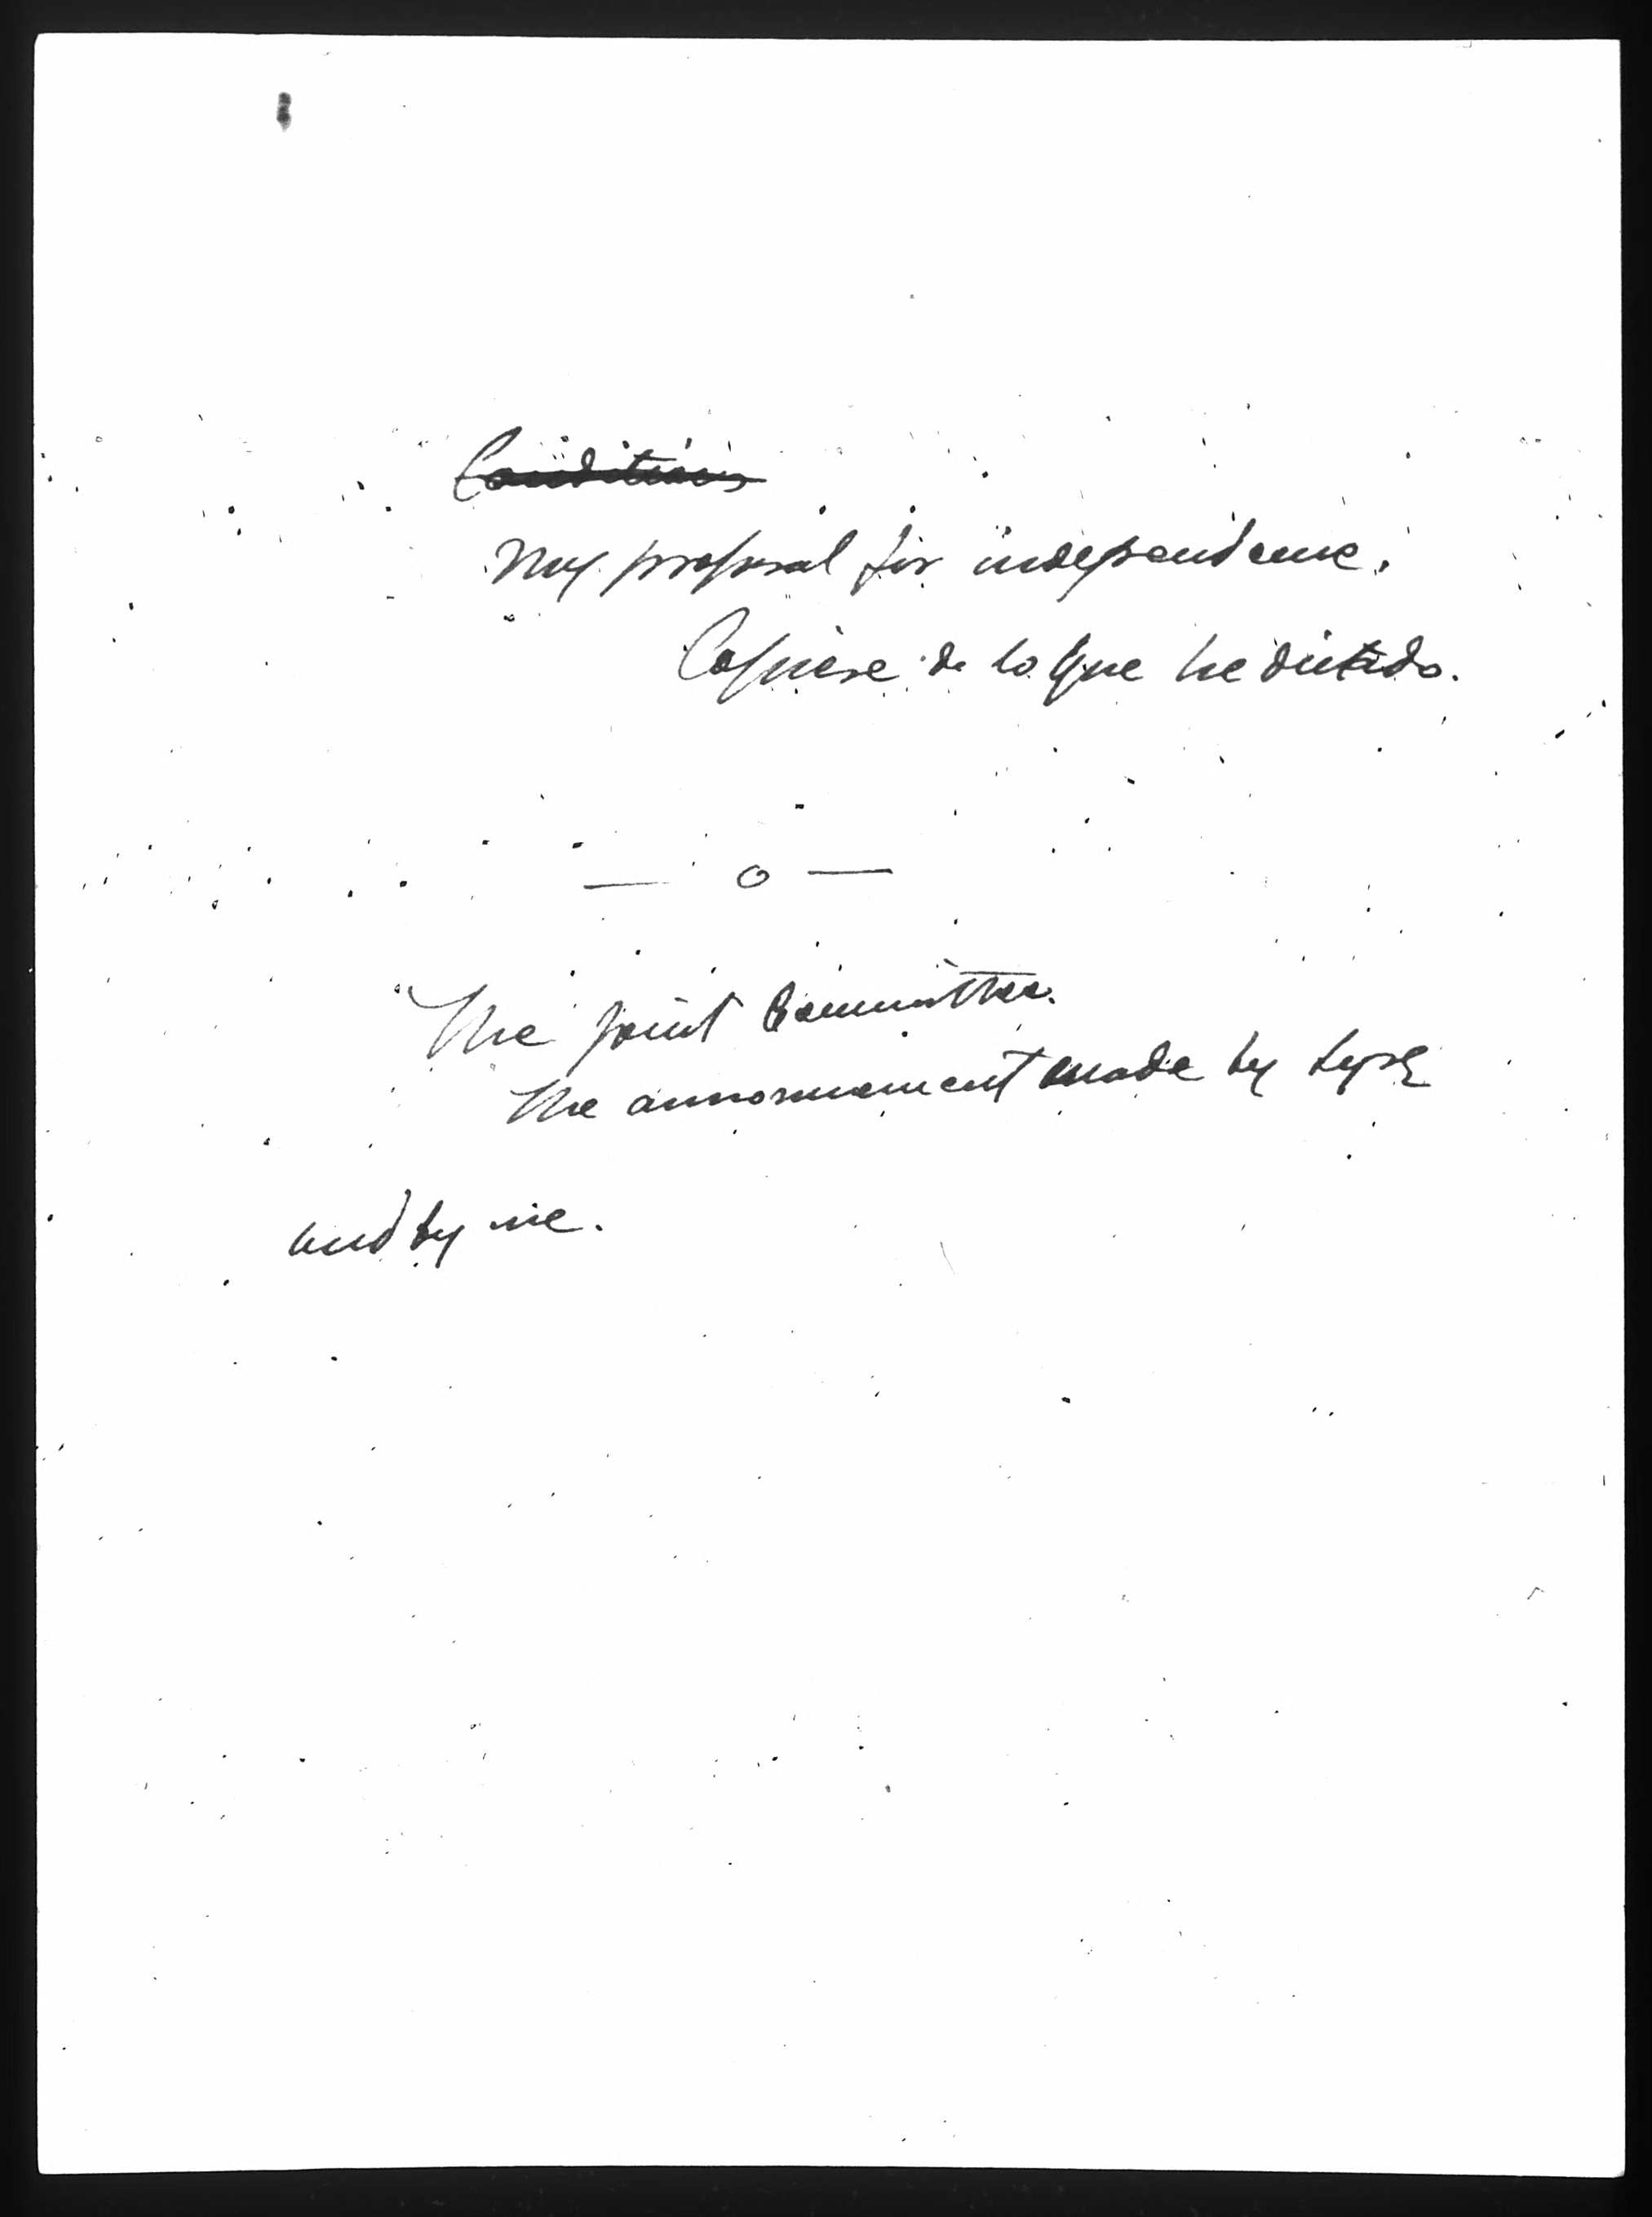 Conditions
My proposal for independence.
Copiese de lo que he dictado.
— o —
The Joint Committee.
The announcement made by
and by me.